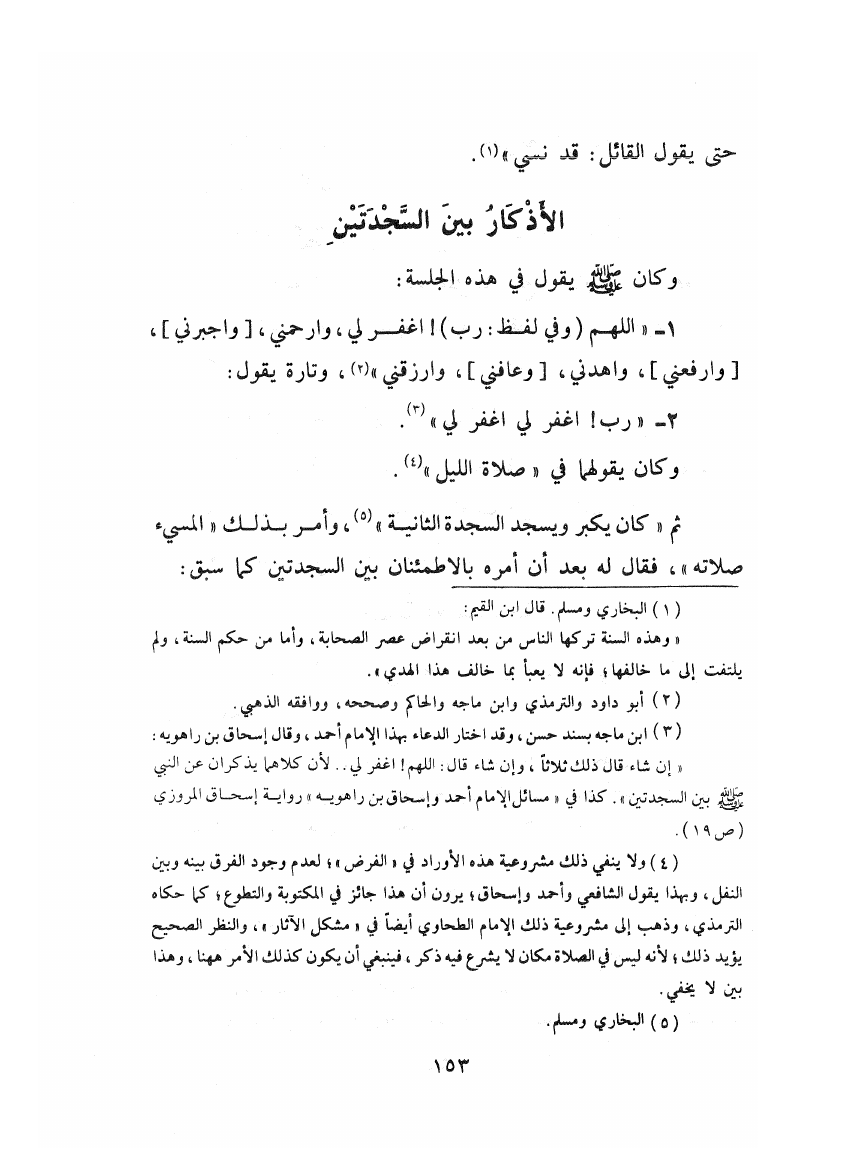 حتى يقول القائل : قد نسي »(١) .
الأَذْكَارُ بينَ السَّجْدَتَيْنِ
وكان ﷺ يقول في هذه الجلسة :
١ـ « اللهم ( وفي لفظ : رب ) ! اغفر لي ، وارحمني ، [ واجبرني ] ،
[ وارفعني ] ، واهدني ، [ وعافني ] ، وارزقني »(٢) ، وتارة يقول :
٢ـ « رب ! اغفر لي اغفر لي »(٣) .
وكان يقولهما في « صلاة الليل »(٤) .
ثم « كان يكبر ويسجد السجدة الثانية »(٥) ، وأمر بذلك « المسيء
صلاته » ، فقال له بعد أن أمره بالاطمئنان بين السجدتين كما سبق :
( ١ ) البخاري ومسلم . قال ابن القيم :
« وهذه السنة تركها الناس من بعد انقراض عصر الصحابة ، وأما من حكم السنة ، ولم
يلتفت إلى ما خالفها ؛ فإنه لا يعبأ بما خالف هذا الهدي » .
( ٢ ) أبو داود والترمذي وابن ماجه والحاكم وصححه ، ووافقه الذهبي .
( ٣ ) ابن ماجه بسند حسن ، وقد اختار الدعاء بهذا الإمام أحمد ، وقال إسحاق بن راهويه :
« إن شاء قال ذلك ثلاثاً ، وإن شاء قال : اللهم ! اغفر لي .. لأن كلاهما يذكران عن النبي
ﷺ بين السجدتين » . كذا في « مسائل الإمام أحمد وإسحاق بن راهويه » رواية إسحاق المروزي
( ص ١٩ ) .
( ٤ ) ولا ينفي ذلك مشروعية هذه الأوراد في « الفرض » ؛ لعدم وجود الفرق بينه وبين
النفل ، وبهذا يقول الشافعي وأحمد وإسحاق ؛ يرون أن هذا جائز في المكتوبة والتطوع ؛ كما حكاه
الترمذي ، وذهب إلى مشروعية ذلك الإمام الطحاوي أيضاً في « مشكل الآثار » ، والنظر الصحيح
يؤيد ذلك ؛ لأنه ليس في الصلاة مكان لا يشرع فيه ذكر ، فينبغي أن يكون كذلك الأمر ههنا ، وهذا
بين لا يخفي .
( ٥ ) البخاري ومسلم .
١٥٣